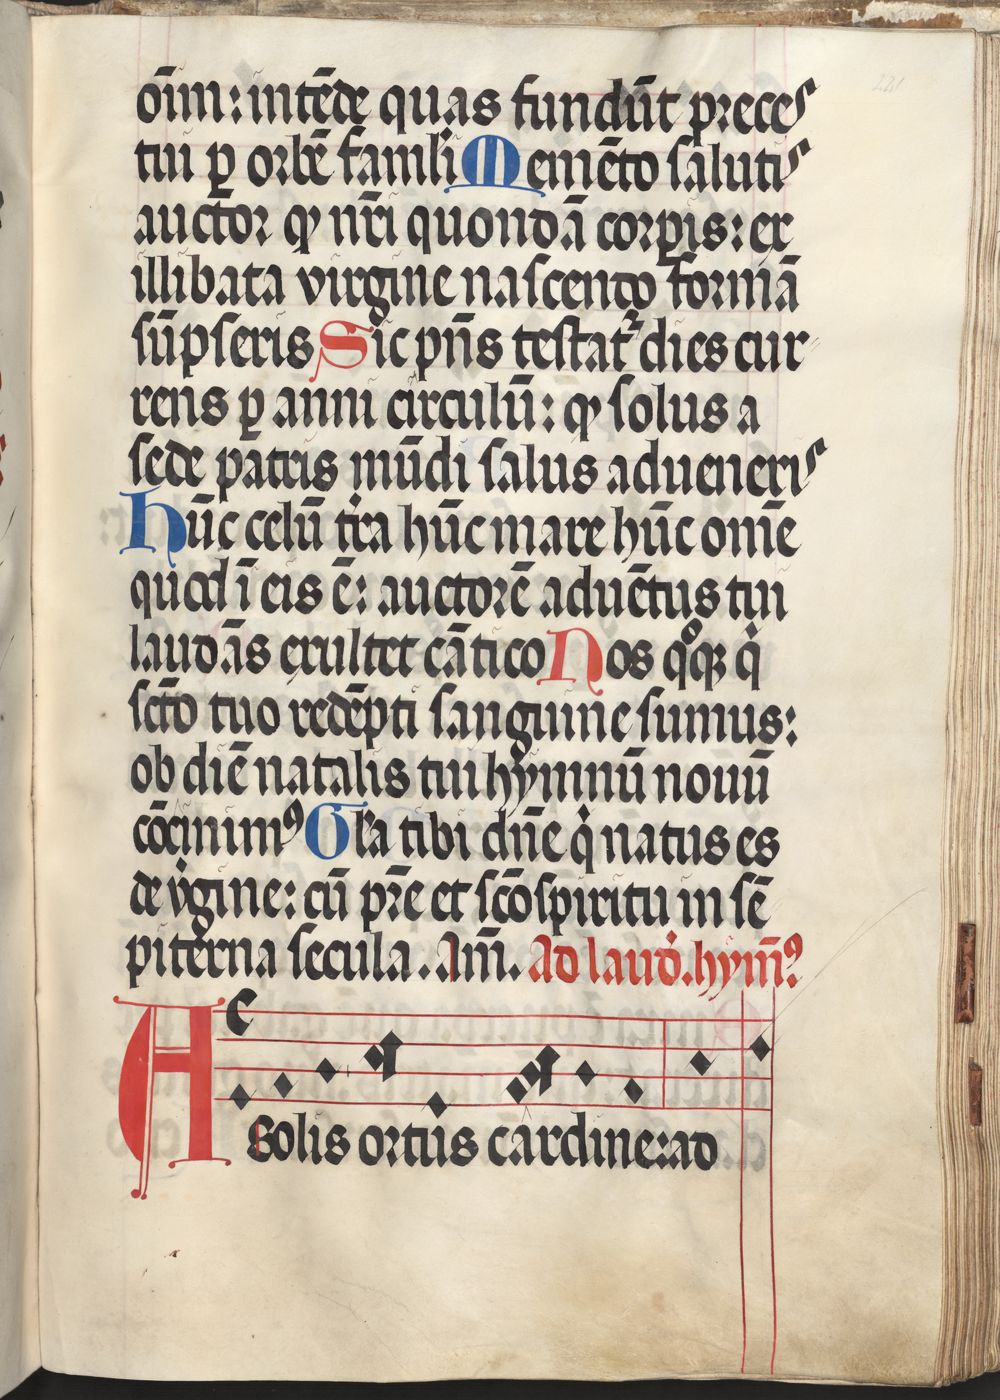 oı̄m: intēde quas fundūt preces
tui ꝑ orbē famuli Memēto salutis
auctor ꝙ nr̄i quondā corꝑis: ex
illibata virgine nascendo formā
sūpseris Sic pn̄s testatᷣ dies cur
rens ꝑ anni circulū: ꝙ solus a
sede patris mūdi salus adueneris
Hūc celū tr̄a hūc mare hūc om̄e
quod ī eis ē: auctorē aduētus tui
laudās exultet cātico Nos qͦqꝫ qⁱ
sc̄to tuo redēpti sanguine sumus:
ob diē natalis tui hymnū nouū
cōcinimꝰ Gl̄a tibi dn̄e qⁱ natus es
de vⁱgine: cū pr̄e et sc̄o spiritu in sē
piterna secula. Am̄. Ad laud. hym̄ꝰ
A Solis ortus cardine: ad